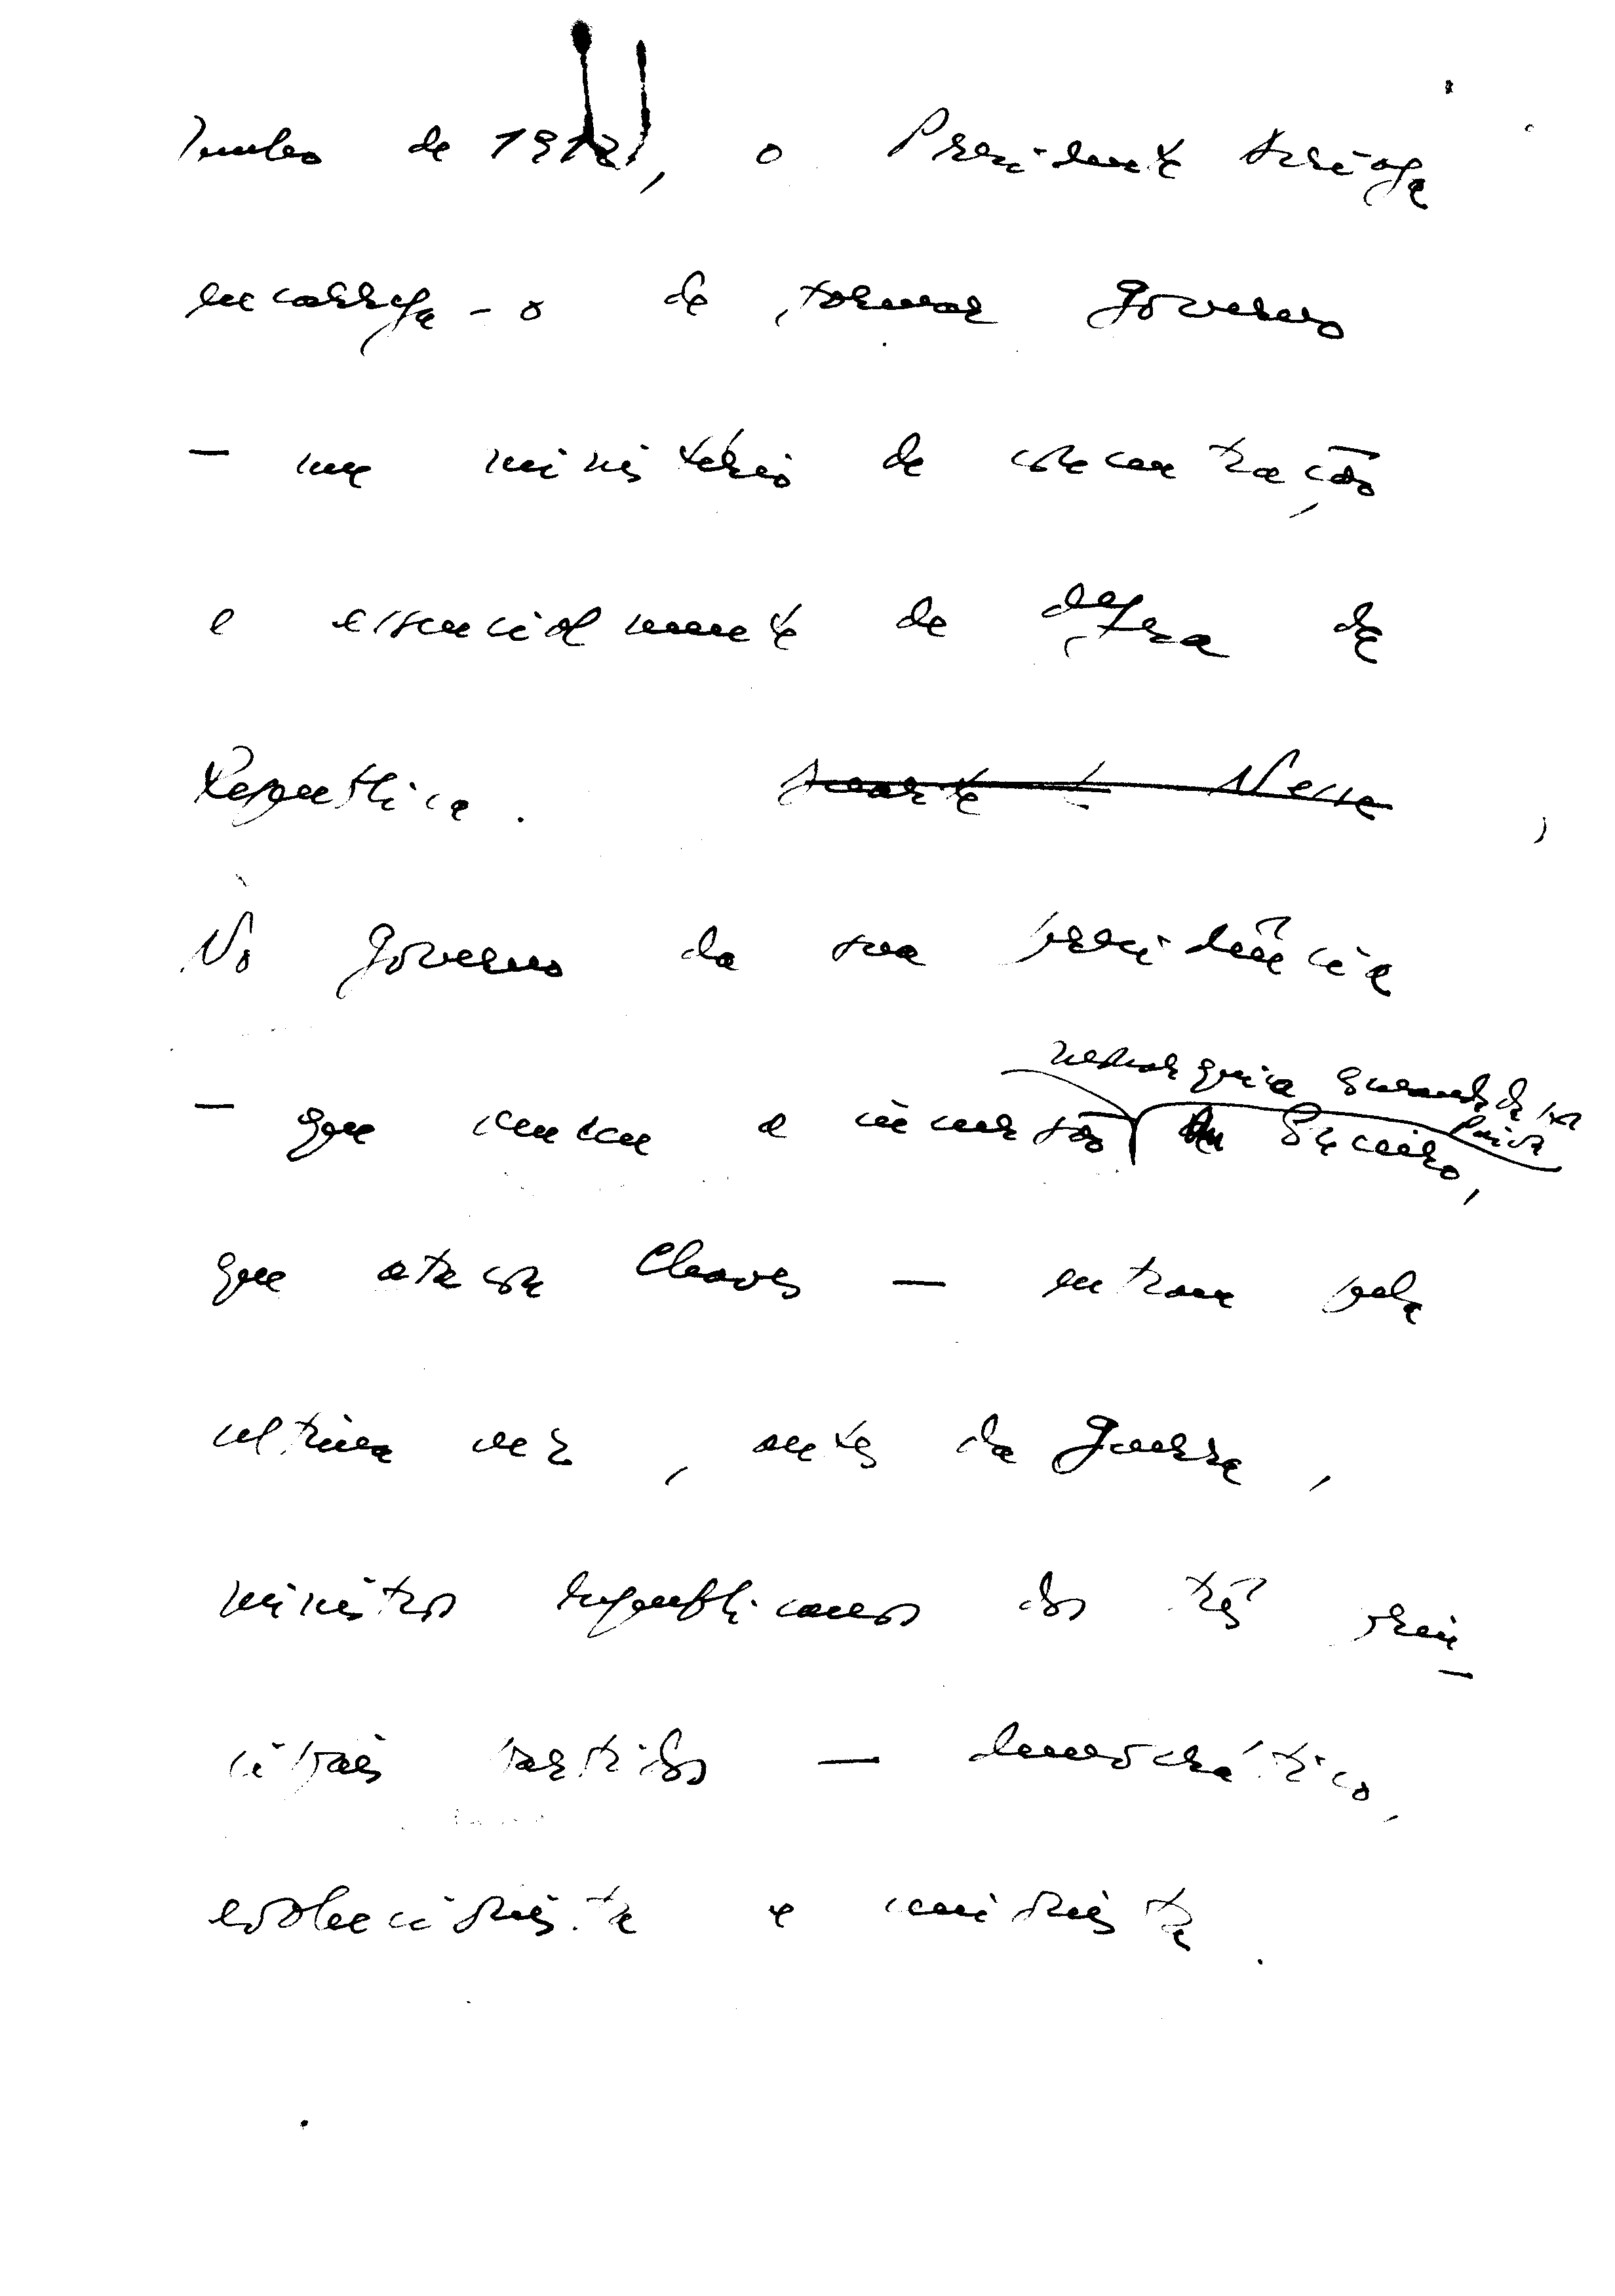 Junho de 1912, o Presidente Arriaga
encarrega-o de formar Governo
— um ministério de concentração,
e essencialmente de defesa da
República. Durante Nessa
No Governo da sua presidência
monárquica comandada por Paiva
— que venceu a incursão de Couceiro,
que atacou Chaves — entram pela
última vez, antes da Guerra,
ministros republicanos dos três prin-
cipais partidos — democrático,
evolucionista e unionista.